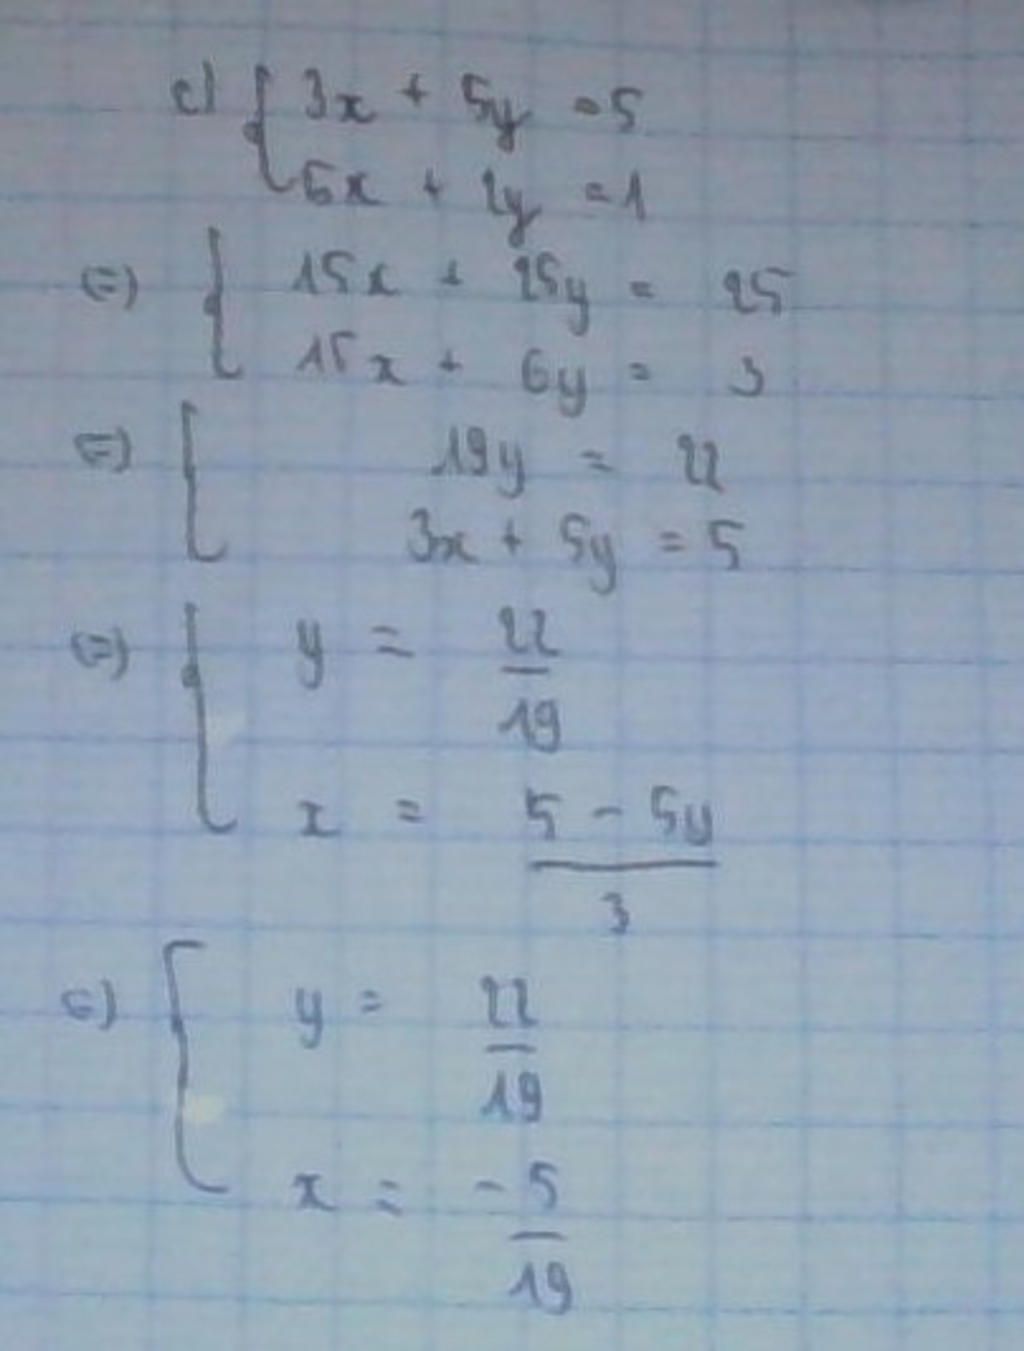 c) { 3x + 5y = 5
5x + 2y = 1
(=) { 15x + 25y = 25
15x + 6y = 3
(=) { 19y = 22
3x + 5y = 5
(=) { y = 22/19
x = 5 - 5y / 3
(=) { y = 22/19
x = -5/19